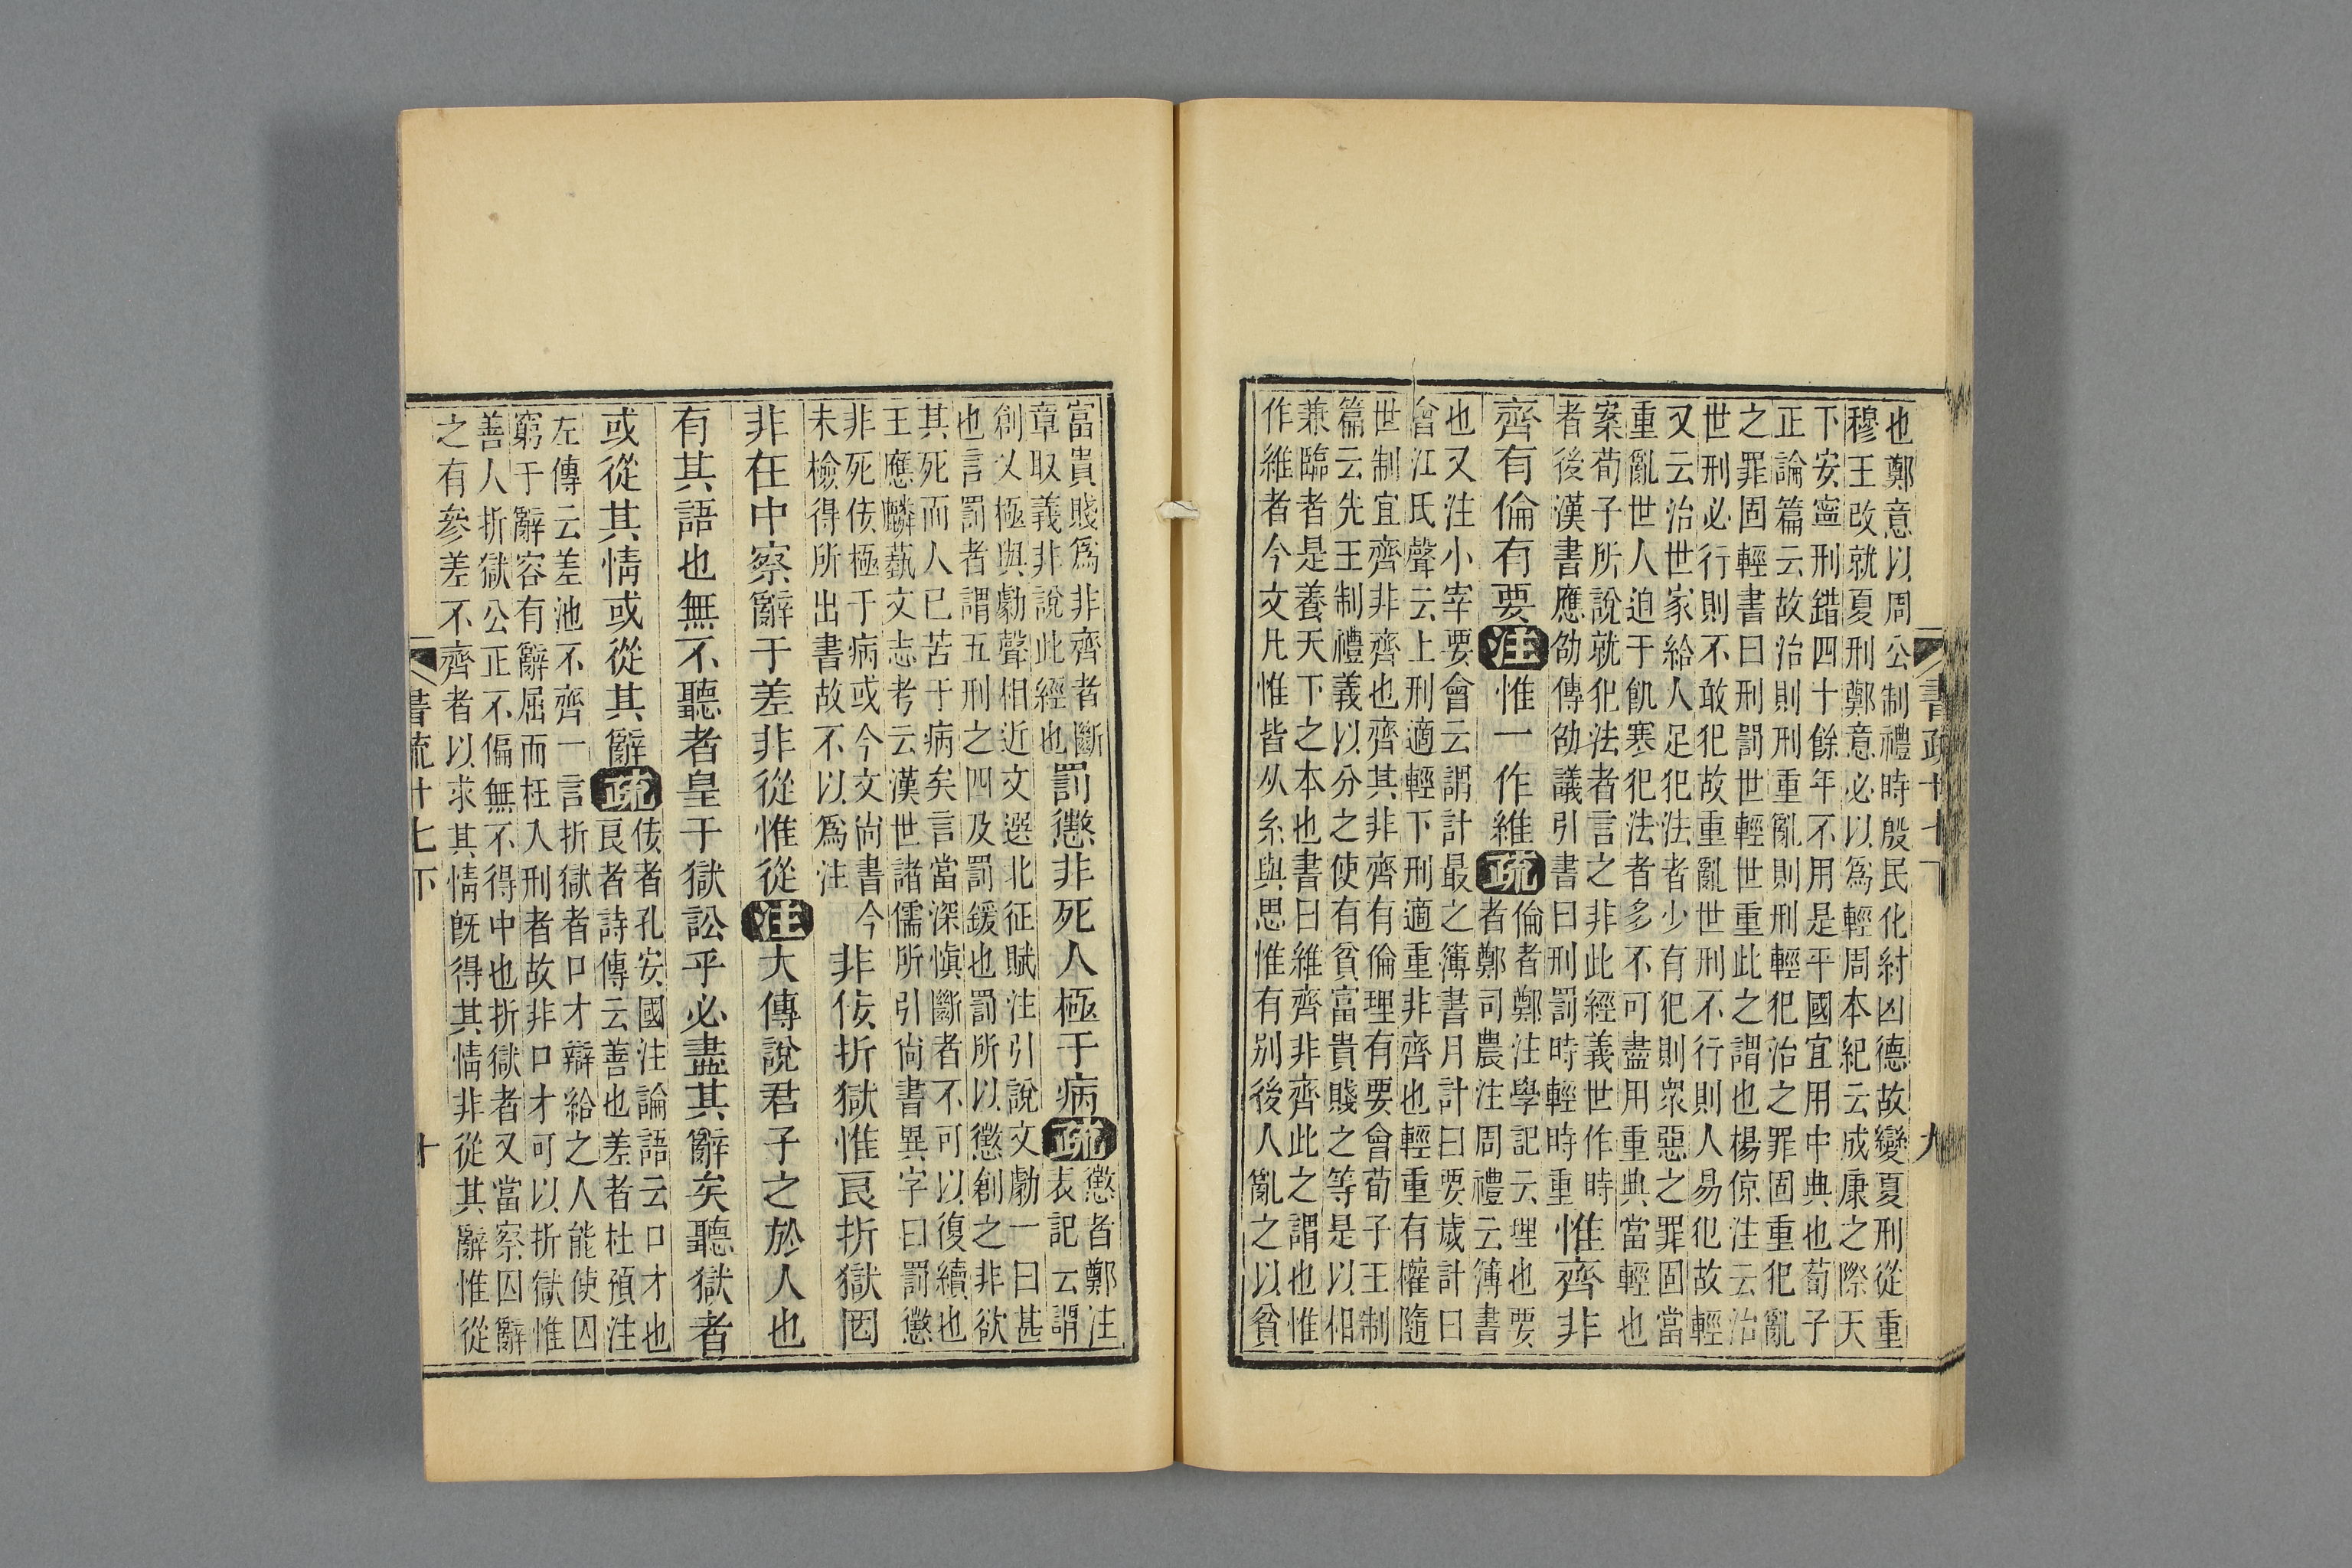 也鄭意以周公制禮時殷民化紂凶德故變夏刑從重
穆王改就夏刑鄭意必以爲輕周本紀云成康之際天
下安寧刑錯四十餘年不用是平國宜用中典也荀子
正論篇云故治則刑重亂則刑輕犯治之罪固重犯亂
之罪固輕書曰刑罰世輕世重此之謂也楊倞注云治
世刑必行則不敢犯故重亂世刑不行則人易犯故輕
又云治世家給人足犯法者少有犯則衆惡之罪固當
重亂世人迫于飢寒犯法者多不可盡用重典當輕也
案荀子所說就犯法者言之非此經義世作時
者後漢書應劭傳劭議引書曰刑罰時輕時重
惟齊非
齊有倫有要注惟一作維疏
倫者鄭注學記云理也要
者鄭司農注周禮云簿書
也又注小宰要會云謂計最之簿書月計曰要歲計曰
會江氏聲云上刑適輕下刑適重非齊也輕重有權隨
世制宜齊非齊也齊其非齊有倫理有要會荀子王制
篇云先王制禮義以分之使有貧富貴賤之等是以相
兼臨者是養天下之本也書曰維齊非齊此之謂也惟
作維者今文凡惟皆从糸與思惟有别後人亂之以貧
書疏十七下
九
富貴賤爲非齊者斷
章取義非說此經也
罰懲非死人極于病疏
懲者鄭注
表記云謂
創乂極與勮聲相近文選北征賦注引說文勮一曰甚
也言罰者謂五刑之四及罰鍰也罰所以懲創之非欲
其死而人已苦于病矣言當深愼斷者不可以復續也
王應麟藝文志考云漢世諸儒所引尙書異字曰罰懲
非死佞極于病或今文尙書今
未檢得所出書故不以爲注
非佞折獄惟良折獄罔
非在中察辭于差非從惟從注大傳說君子之於人也
有其語也無不聽者皇于獄訟乎必盡其辭矣聽獄者
或從其情或從其辭疏
佞者孔安國注論語云口才也
良者詩傳云善也差者杜預注
左傳云差池不齊一言折獄者口才辯給之人能使囚
窮于辭容有辭屈而枉入刑者故非口才可以折獄惟
善人折獄公正不偏無不得中也折獄者又當察囚辭
之有參差不齊者以求其情旣得其情非從其辭惟從
書疏十七下
十